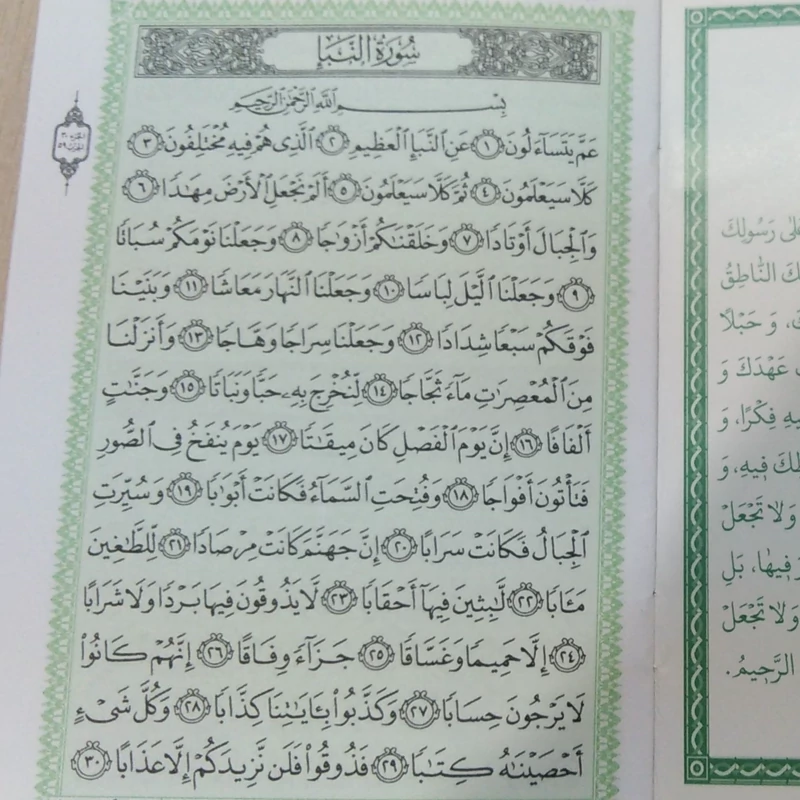 سُورَةُ النَّبَإِ
بِسْمِ ٱللَّهِ ٱلرَّحْمَٰنِ ٱلرَّحِيمِ
عَمَّ يَتَسَآءَلُونَ ١ عَنِ ٱلنَّبَإِ ٱلْعَظِيمِ ٢ ٱلَّذِى هُمْ فِيهِ مُخْتَلِفُونَ ٣
كَلَّا سَيَعْلَمُونَ ٤ ثُمَّ كَلَّا سَيَعْلَمُونَ ٥ أَلَمْ نَجْعَلِ ٱلْأَرْضَ مِهَٰدًا ٦
وَٱلْجِبَالَ أَوْتَادًا ٧ وَخَلَقْنَٰكُمْ أَزْوَٰجًا ٨ وَجَعَلْنَا نَوْمَكُمْ سُبَاتًا
٩ وَجَعَلْنَا ٱلَّيْلَ لِبَاسًا ١٠ وَجَعَلْنَا ٱلنَّهَارَ مَعَاشًا ١١ وَبَنَيْنَا
فَوْقَكُمْ سَبْعًا شِدَادًا ١٢ وَجَعَلْنَا سِرَاجًا وَهَّاجًا ١٣ وَأَنزَلْنَا
مِنَ ٱلْمُعْصِرَٰتِ مَآءً ثَجَّاجًا ١٤ لِّنُخْرِجَ بِهِۦ حَبًّا وَنَبَاتًا ١٥ وَجَنَّٰتٍ
أَلْفَافًا ١٦ إِنَّ يَوْمَ ٱلْفَصْلِ كَانَ مِيقَٰتًا ١٧ يَوْمَ يُنفَخُ فِى ٱلصُّورِ
فَتَأْتُونَ أَفْوَاجًا ١٨ وَفُتِحَتِ ٱلسَّمَآءُ فَكَانَتْ أَبْوَٰبًا ١٩ وَسُيِّرَتِ
ٱلْجِبَالُ فَكَانَتْ سَرَابًا ٢٠ إِنَّ جَهَنَّمَ كَانَتْ مِرْصَادًا ٢١ لِّلطَّٰغِينَ
مَـَٔابًا ٢٢ لَّٰبِثِينَ فِيهَآ أَحْقَابًا ٢٣ لَّا يَذُوقُونَ فِيهَا بَرْدًا وَلَا شَرَابًا
٢٤ إِلَّا حَمِيمًا وَغَسَّاقًا ٢٥ جَزَآءً وِفَاقًا ٢٦ إِنَّهُمْ كَانُوا۟
لَا يَرْجُونَ حِسَابًا ٢٧ وَكَذَّبُوا۟ بِـَٔايَٰتِنَا كِذَّابًا ٢٨ وَكُلَّ شَىْءٍ
أَحْصَيْنَٰهُ كِتَٰبًا ٢٩ فَذُوقُوا۟ فَلَن نَّزِيدَكُمْ إِلَّا عَذَابًا ٣٠
رَسُولِكَ
النَّاطِقُ
وَ حَبْلًا
عَهْدَكَ وَ
فِكْرًا، وَ
فِيهِ، وَ
وَلَا تَجْعَلْ
فِيهَا، بَلِ
وَلَا تَجْعَلْ
الرَّحِيمُ.